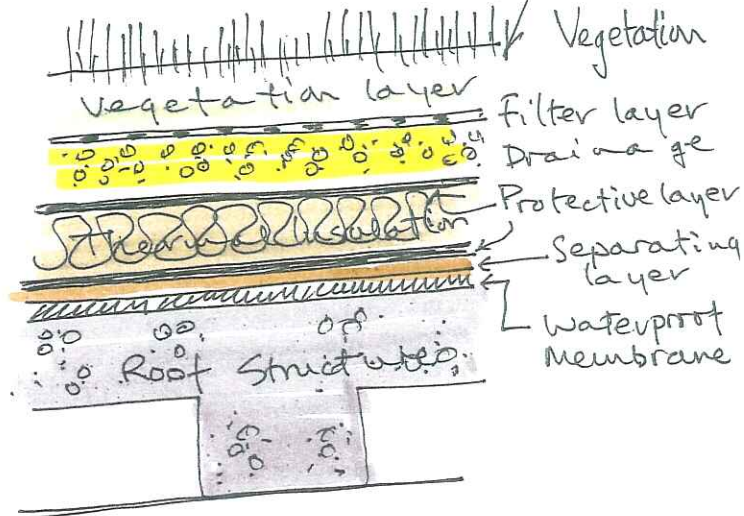 Vegetation
Vegetation layer
Filter layer
Drainage
Protective layer
Thermal Insulation
Separating
layer
Waterproof
Membrane
Roof Structure